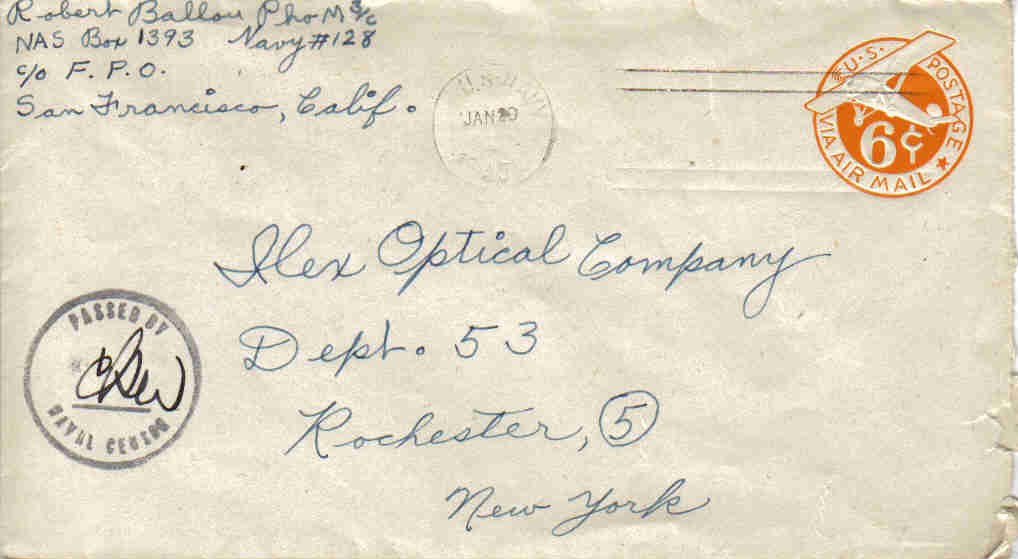 Robert Ballou PhoM 3/c
NAS Box 1393 Navy#128
c/o F. P. O.
San Francisco, Calif.
U.S. NAVY
JAN 20
U.S. POSTAGE
VIA AIR MAIL
6¢
Ilex Optical Company
Dept. 53
Rochester, 5
New York
PASSED BY
NAVAL CENSOR